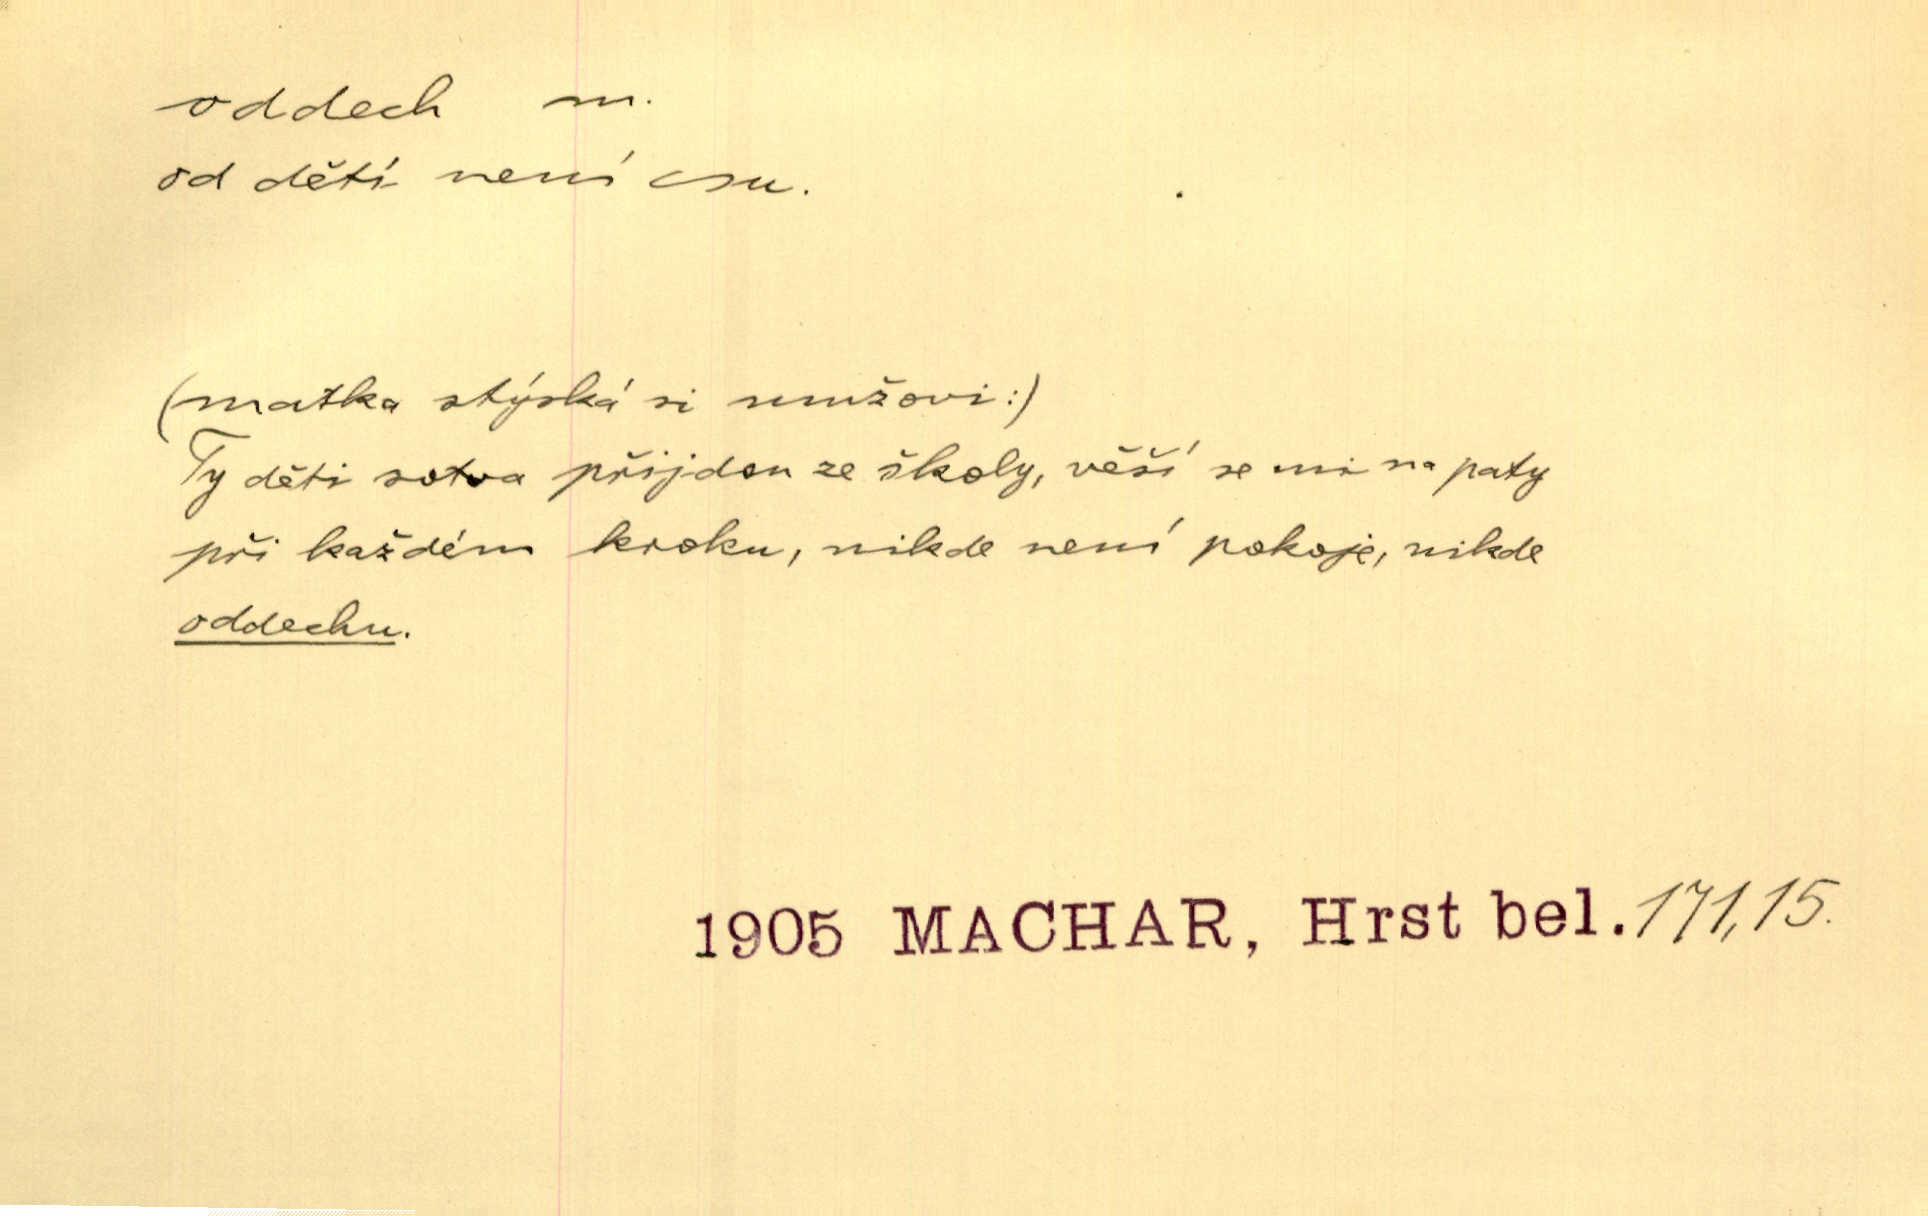 oddech m.
od dětí není ~u.
(matka stýská si mužovi:)
Ty děti sotva přijdou ze školy, věší se mi na paty
při každém kroku, nikde není pokoje, nikde
oddechu.
1905 MACHAR, Hrst bel. 171,15.